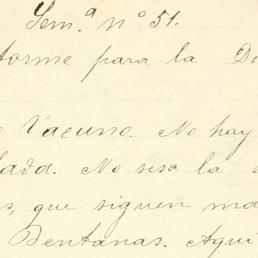 Sem.ª nº 51.
forme para la
Vacuno. No hay
No cesa la
que siguen
Dentanas. Aquí